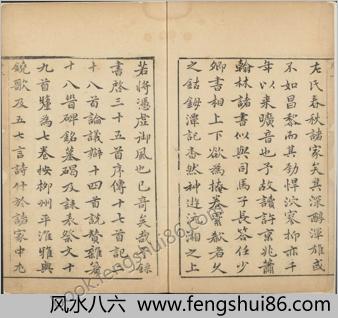 左氏春秋諸家矣其深醇渾雄或
不如昌黎而其勁悍泬寥抑亦千
年以來曠音也予故讀許京兆蕭
翰林諸書似與司馬子長荅任少
卿書相上下欲為掩卷累欷者久
之鈷鉧潭記杳然神遊沅湘之上
若將憑虛御風也已奇矣哉錄
書啓三十五首序傳十七首記二
十八首論議辯十四首說贊雜著
十八首碑銘墓碣及誄表祭文十
九首釐為七卷按柳州平淮雅與
鐃歌及五七言詩什於諸家中尤
book.fengshui86.com
风水八六 www.fengshui86.com